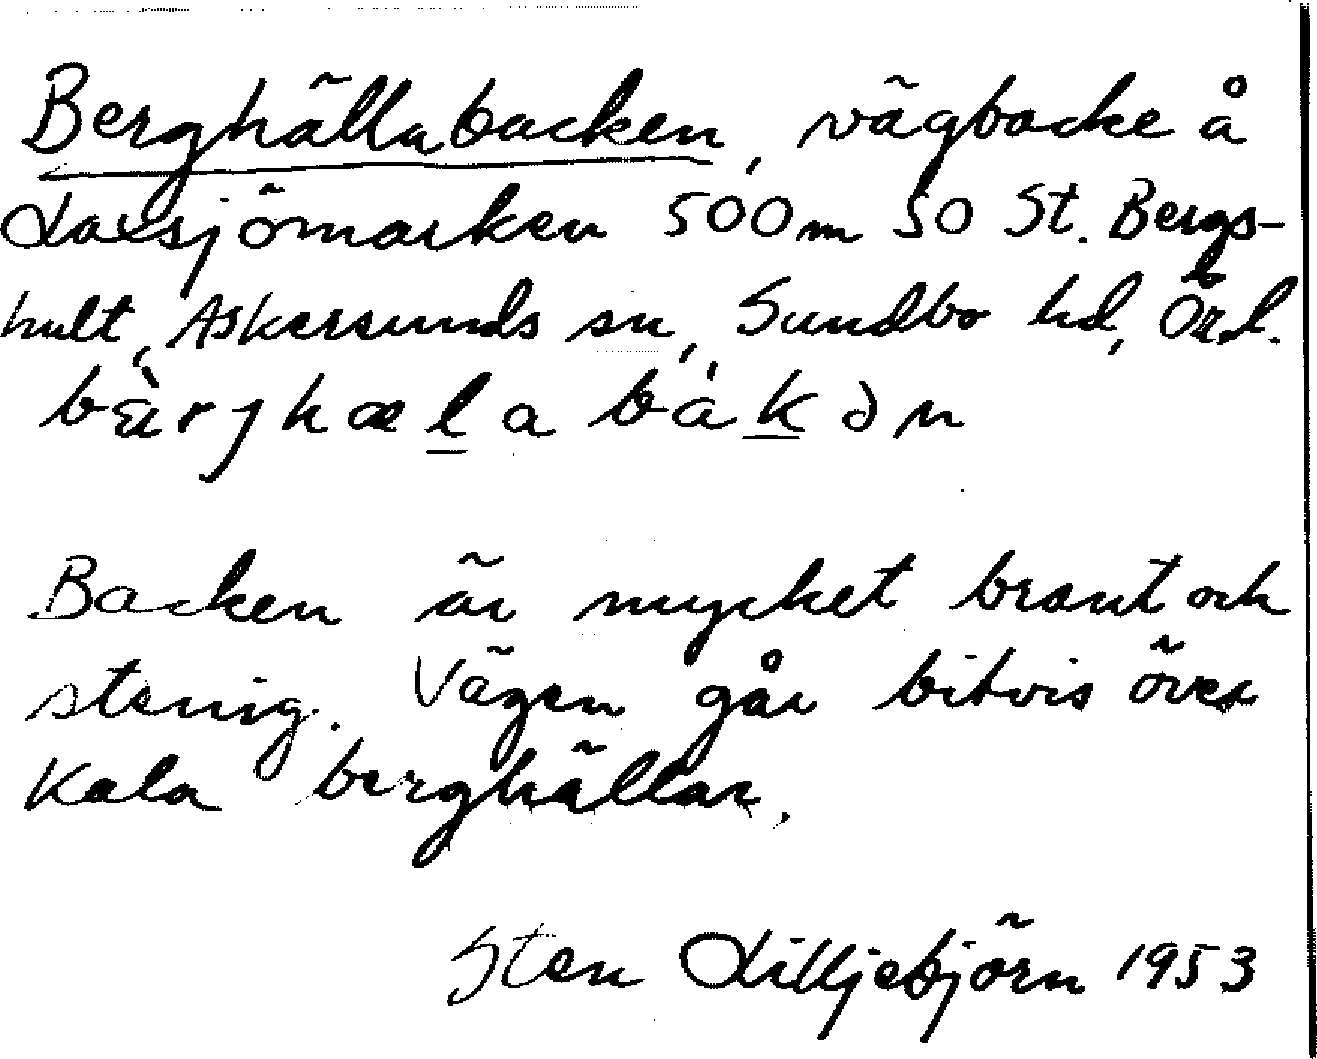 Berghällabacken, vägbacke å
Laxsjömarken 500m SO St. Bergs-
hult, Askersunds sn, Sundbo hd, Ör.l.
bä̀rjhæla bákən
Backen är mycket brant och
stenig. Vägen går bitvis över
kala berghällar.
Sten Lilljebjörn 1953